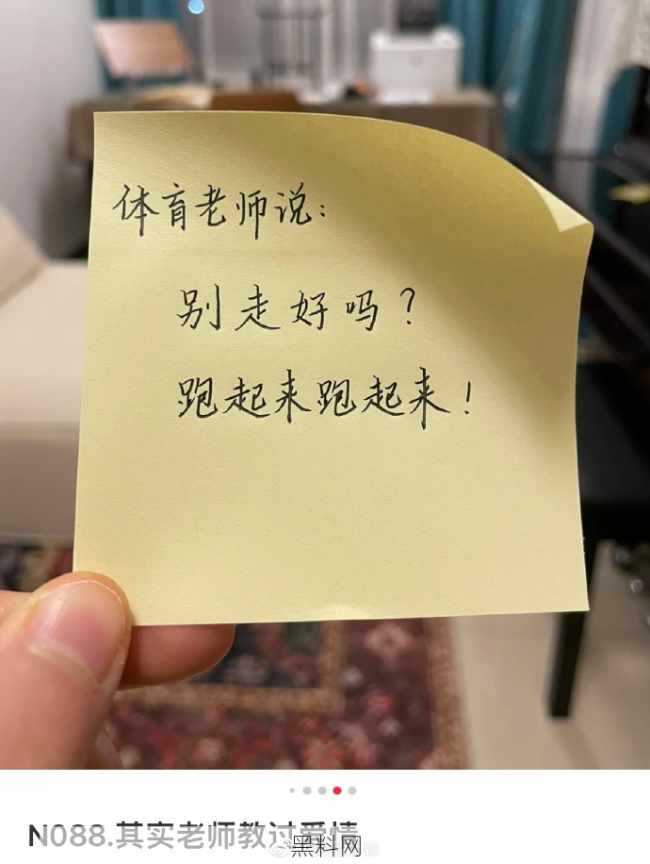 体育老师说:
别走好吗?
跑起来跑起来!
N088.其实老师教过爱情
黑料网